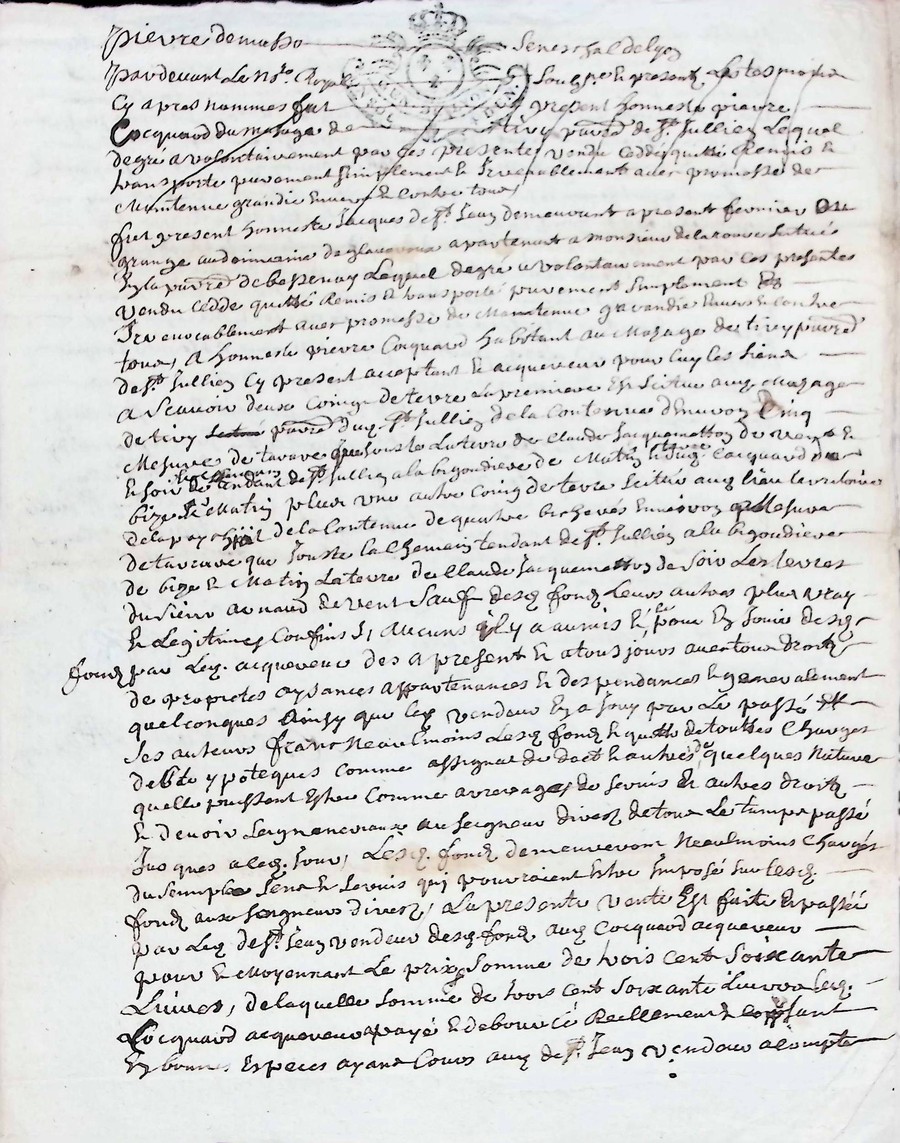 pierre demasso seneschal de lyon
par devant le no.re Royal soub.ne et present les tesmoins
cy apres nommes fut present honneste pierre
Cocquard du masage de tiry parr. de st. Jullien Lequel
de gré a volontairement par ces presentes vendu cedde quitté Remis et
transporte purement simplement et Irrevocablement avec promesse de
Maintenue grandie Envers et Contre tous
fut present honneste Jacques de st. Jean demeurant a present fermier
grange au domaine de apartenant a monsieur de la scitués
En la parr. de bessenay Lequel de gré a volontairement par ces presentes
vendu Cedde quitté Remis et transporté purement simplement et
Irrevocablement avec promesse de Maintenue garandie Envers et Contre
tous, A honneste pierre Cocquard habitant au Masage de tiry parr.
de st. Jullien Cy present acceptant et acquereur pour luy les siens
a scavoir deux Coings de terre la premiere Est scitue aud. Masage
de tiry parr. dud. st. Jullien de la Contenue d'Environ Cinq
Mesures de tarare que jouste la terre de Claude Jacquemetton de vent et
et soir le chemin tendant de st. Jullien a la bigoudiere de Matin Cocquard de
bize et Matin plus une autre Coing de terre scitué aud. lieu territoire
de la pay de la Contenue de quatre bicherés Environ Mesure
de tarare que Jouste la Chemain tendant de st. Jullien a la bigoudiere
de bize et Matin La terre de Claude Jacquemetton de soir Les terres
du sieur arnaud de vent Sauf desd. fondz Leurs autres plus vray
et Legitimes Confins sy aucuns il y a aumis et pour En Jouir desd.
fondz par led. acquereur des a present et a tousjours avec tous droitz
de proprietes aysances appartenances et despendances et generalement
quelconques Ainsy que led. vendeur En a Jouy par le passé et
ses auteurs franc Neaulmoins Lesd. fondz et quitte de touttes Charges
debte ypoteques Comme assignat de doct et autres de quelques Nature
quelle puissent Estre Comme arrerages de servis et autres droitz
et devoir seigneuriaux au seigneur direct de tous Le temps passé
Jusques a led. Jour, Lesd. fondz demeureront Neaulmoins Chargés
du semple sens et servis qui pourroient Estre Imposé sur lesd.
fondz aux seigneurs direct, La presente vente Est faite et passée
par led. de st. Jean vendeur desd. fondz aud. Cocquard acquereur
pour et Moyennant Le prix Somme de trois cent soixante
Livres, de laquelle somme de trois cent soixante Livres led.
Cocquard acquereur a payé et debourcé Reellement Comptant
En bonnes Especes ayant Cours aud. de st. Jean vendeur a Compte